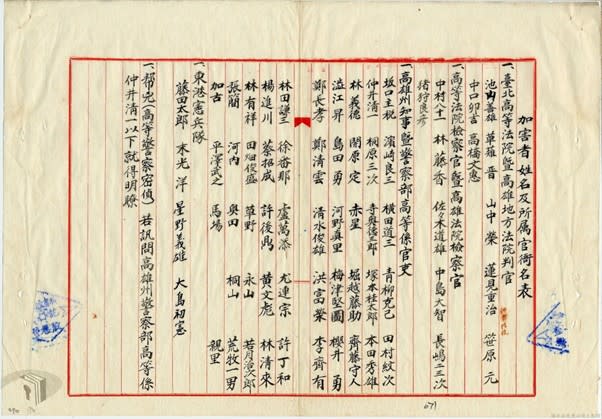 加害者姓名及所屬官衙名表
一、臺北高等法院暨高雄地方法院判官
池內善雄 草薙晉 山中榮 蓮見重治 笹原元
中口卯吉 高橋文惠
一、高等法院檢察官暨高雄法院檢察官
中村八十一 林藤香 佐々木道雄 中島大智 長嶋二三次
猪狩良彥
一、高雄州知事暨警察部高等係官吏
坂口主稅 濱崎良三 橫田道三 青柳克己 田村紋次
仲井清一 桐原三次 寺奧德三郎 塚本桂太郎 本田秀雄
林義德 閉原定 赤星 堀越藤助 齊藤守人
溢江昇 島田勇 河野真里 梅津堅圖 櫻井勇
鄭長孝 鄭清雲 清水俊雄 洪富榮 李齊有
林田謙三 徐番那 盧萬添 尤連宗 許丁和
楊進川 蔡招成 許後鳥 黃文彪 林清來
林有祥 田畑俊盛 草野 永山 若月治次郎
張蘭 河內 奧田 桐山 荒牧一男
加古 平澤武之 馬場 親里
一、東港憲兵隊
藤田太郎 末光洋 星野義雄 大島初憲
一、幫兇（高等警察密偵）若訊問高雄州警察部高等係
仲井清一以下就得明瞭
671